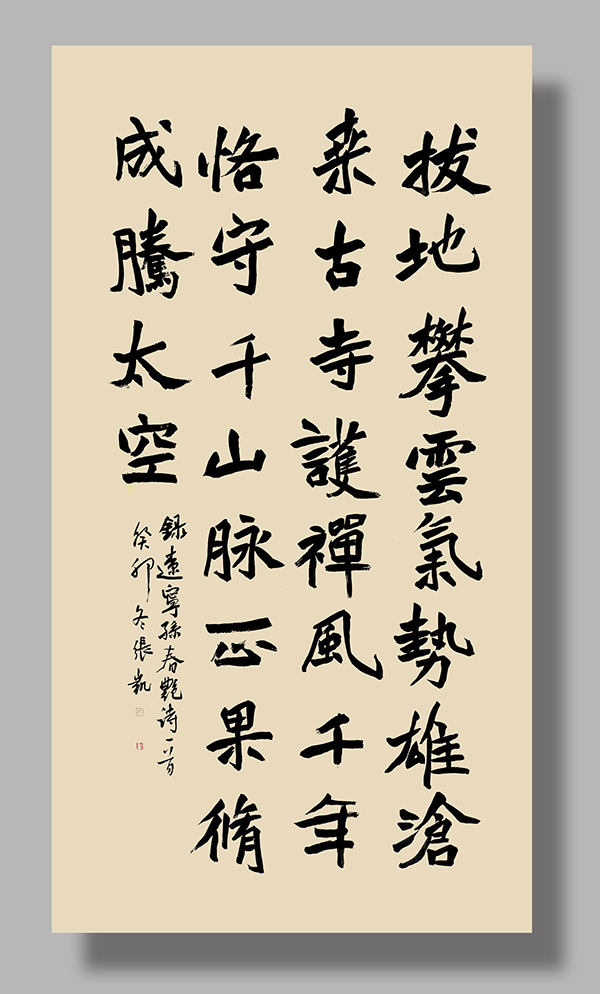 拔地攀雲氣勢雄滄
桒古寺護禪風千年
恪守千山脉正果脩
成騰太空
録遼寧孫春艷詩一首
癸卯冬張凱